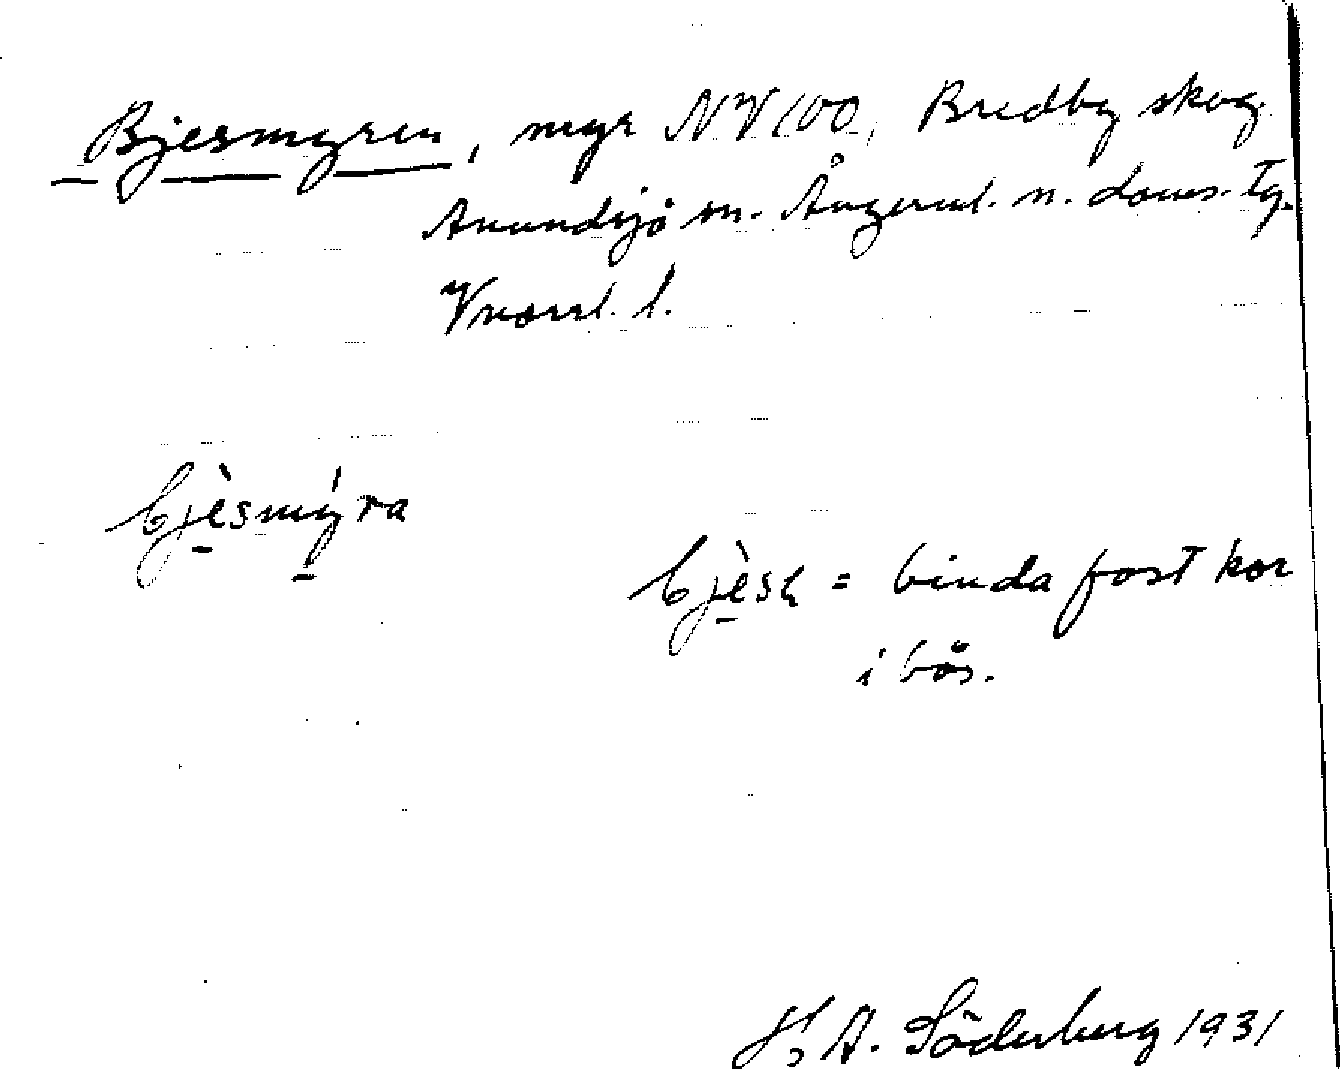 Bjesmyren, myr NV100, Bredby skog
Anundsjö sn. Ångerml. n. doms. Tg.
Vnorrl. l.
bjèsmýra
bjèsą = binda fast kor
i bås.
H. A. Söderberg 1931